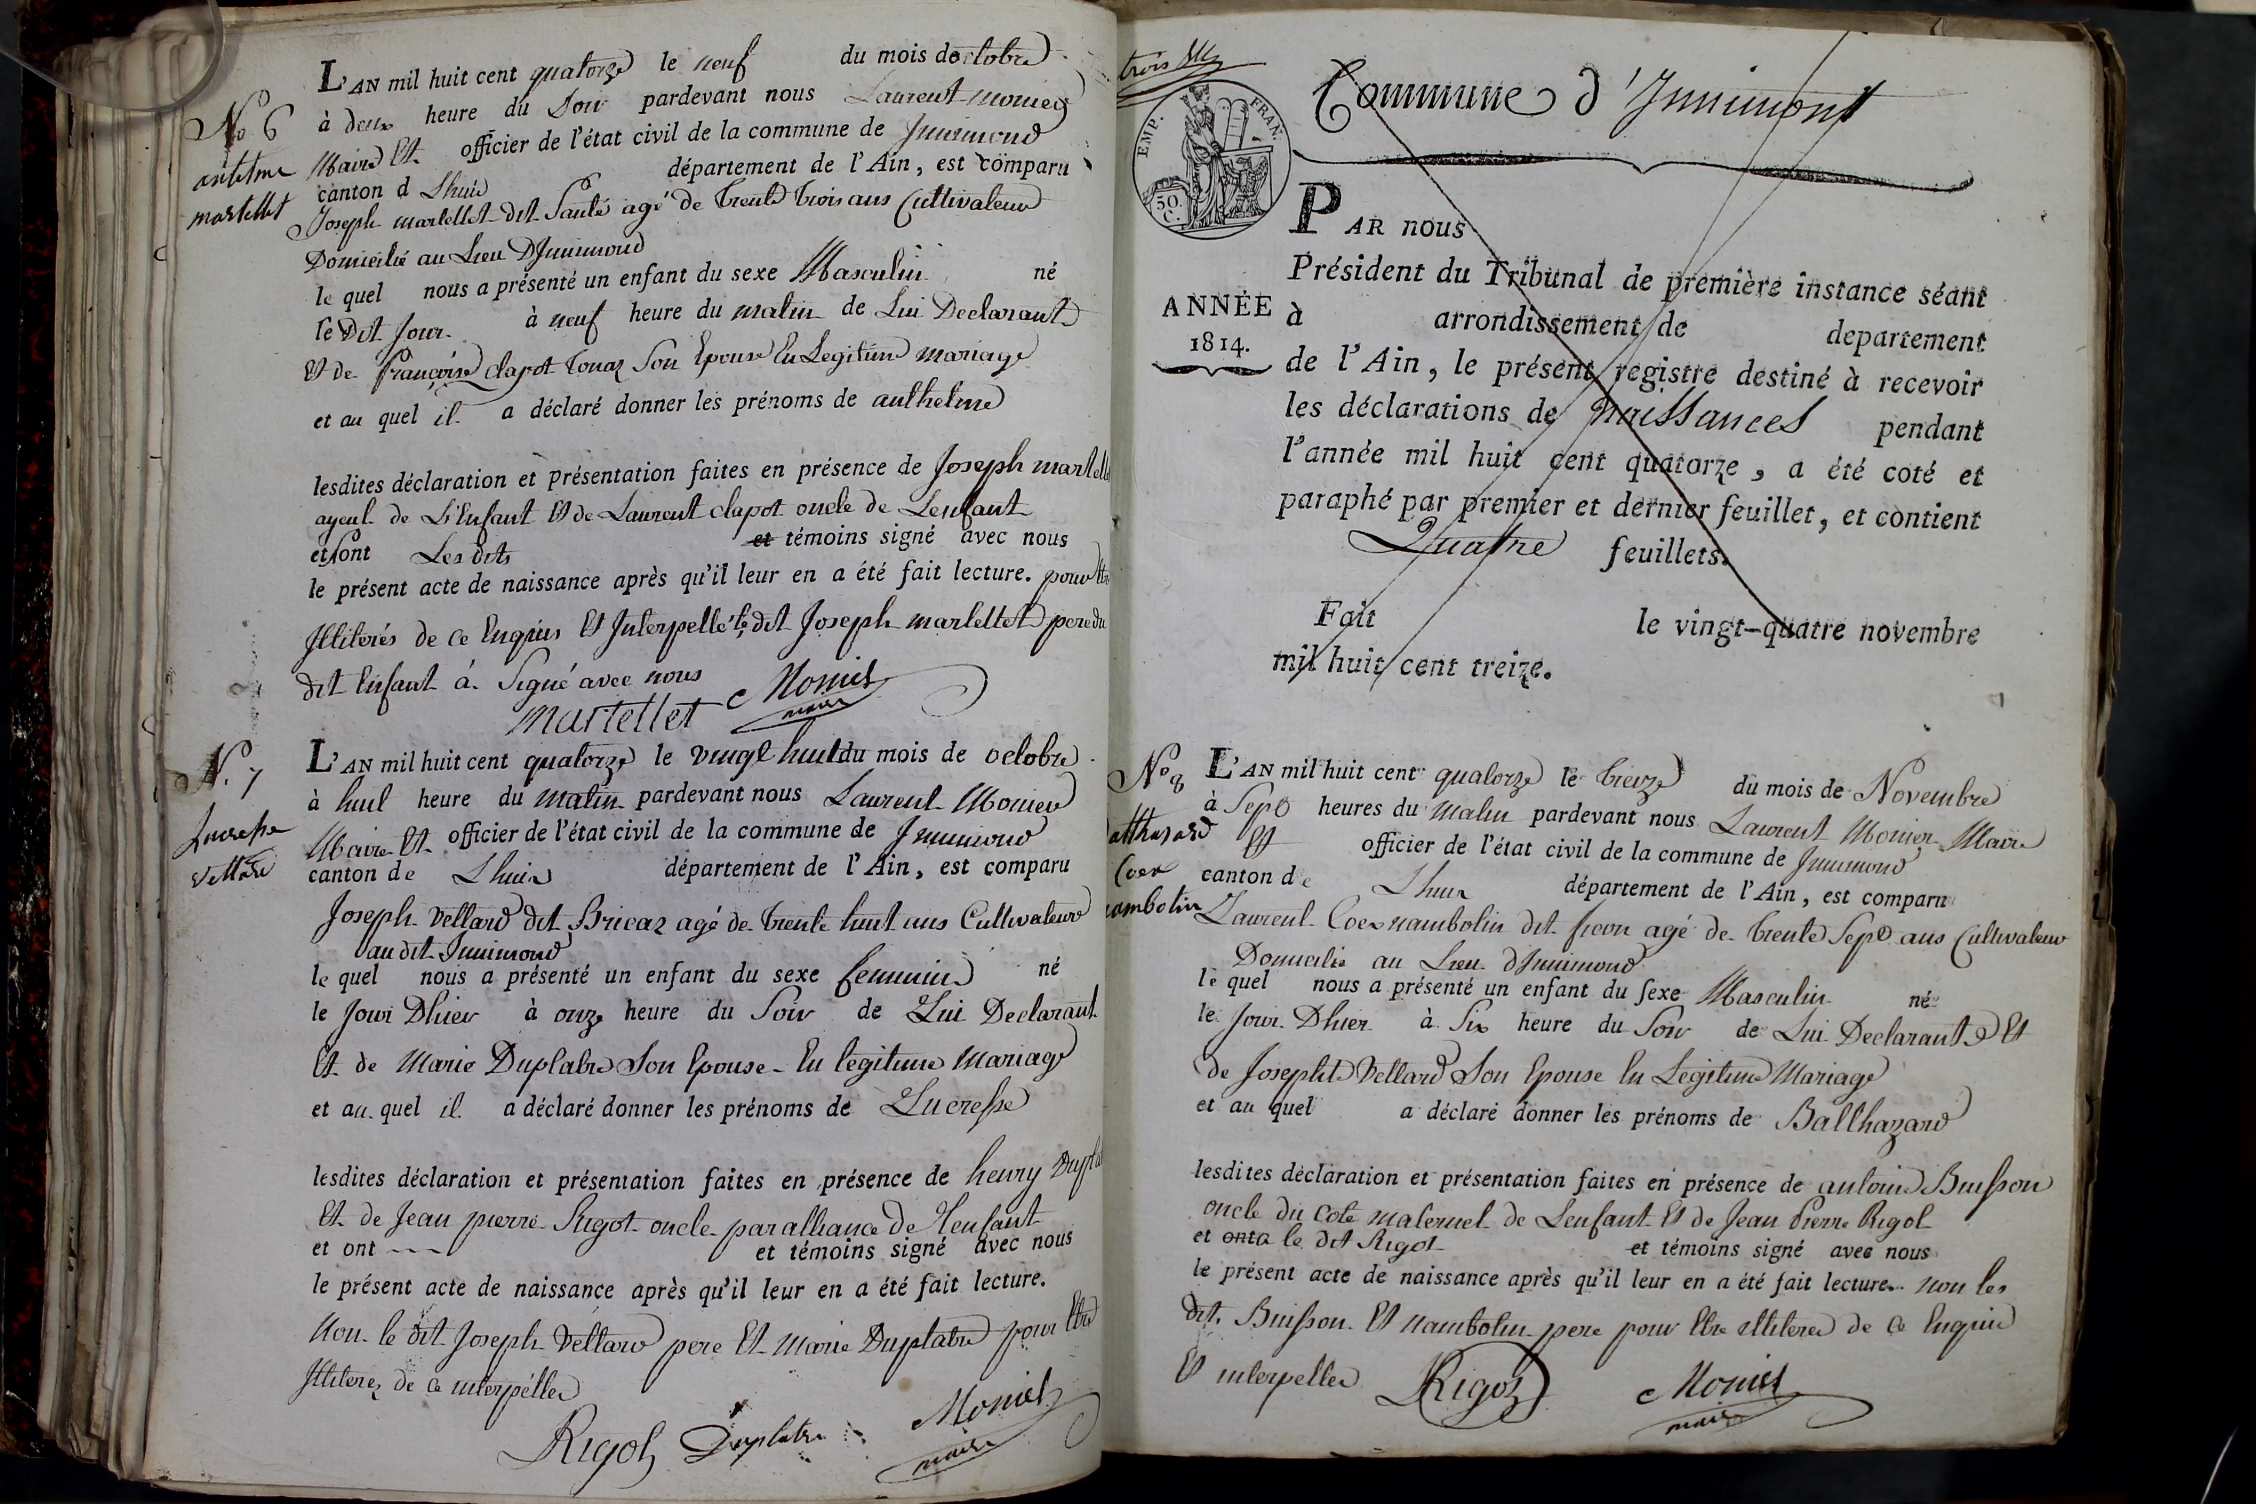 L'AN mil huit cent quatorze le neuf du mois doctobre
No. 6
à deux heure du Soir pardevant nous Laurent Monier
Maire Et officier de l'état civil de la commune de Innimond
antelme
martellet
canton d Lhuis département de l'Ain, est comparu
Joseph martellet dit Santé agé de trente trois ans Cultivateur
Domicilié au Lieu DInnimond
le quel nous a présenté un enfant du sexe Masculin né
le Dit Jour à neuf heure du matin de Lui Declarant
Et de françoise clapot Touaz Son Epouse En Legitime mariage
et au quel il a déclaré donner les prénoms de anthelme
lesdites déclaration et présentation faites en présence de Joseph martell
ayeul de L'Enfant Et de Laurent clapot oncle de Lenfant
et sont Les dits et témoins signé avec nous
le présent acte de naissance après qu'il leur en a été fait lecture. pour Etre
Illiterés de ce Enquis Et Interpellé le dit Joseph martellet pere du
dit Enfant à Signé avec nous
Martellet Monier
maire
L'AN mil huit cent quatorze le vingt huit du mois de octobre
N. 7
à huit heure du matin pardevant nous Laurent Monier
Lucresse
Vellard
Maire Et officier de l'état civil de la commune de Innimond
canton de Lhuis département de l'Ain, est comparu
Joseph Vellard dit Bricaz agé de trente huit ans Cultivateur
au dit Innimond
le quel nous a présenté un enfant du sexe feminin né
le Jour Dhier à onze heure du Soir de Lui Declarant
Et de Marie Duplatre Son Epouse En legitime Mariage
et au quel il a déclaré donner les prénoms de Lucresse
lesdites déclaration et présentation faites en présence de henry Dupla
Et de Jean pierre Rigot oncle par alliance de Lenfant
et ont --- et témoins signé avec nous
le présent acte de naissance après qu'il leur en a été fait lecture.
Non le dit Joseph Vellard pere Et Marie Duplatre pour Etre
Illiterez de ce interpellez
Rigot Duplatre Monier
maire
trois
EMP. FRAN.
50. C.
Commune d'Innimont
PAR nous
Président du Tribunal de première instance séant
ANNÉE
1814.
à arrondissement de departement
de l'Ain, le présent registre destiné à recevoir
les déclarations de naissances pendant
l'année mil huit cent quatorze, a été coté et
paraphé par premier et dernier feuillet, et contient
Quatre feuillets.
Fait le vingt-quatre novembre
mil huit cent treize.
No 8
L'AN mil huit cent quatorze le treize du mois de Novembre
à Sept heures du Matin pardevant nous Laurent Monier Maire
althazard
Coex
nambotin
Et officier de l'état civil de la commune de Innimond
canton de Lhuis département de l'Ain, est comparu
Laurent Coex nambotin dit agé de trente Sept ans Cultivateur
Domicilié au Lieu dInnimond
le quel nous a présenté un enfant du sexe Masculin né
le Jour Dhier à Six heure du Soir de Lui Declarant Et
de Josephte Vellard Son Epouse En Legitime Mariage
et au quel a déclaré donner les prénoms de Balthazard
lesdites déclaration et présentation faites en présence de antoine Buisson
oncle du coté maternel de Lenfant Et de Jean Pierre Rigot
et ont a le dit Rigot et témoins signé avec nous
le présent acte de naissance après qu'il leur en a été fait lecture. non les
dit. Buisson Et nambotin pere pour Etre illiteres de ce Enquis
Et interpellez Rigot Monier
maire